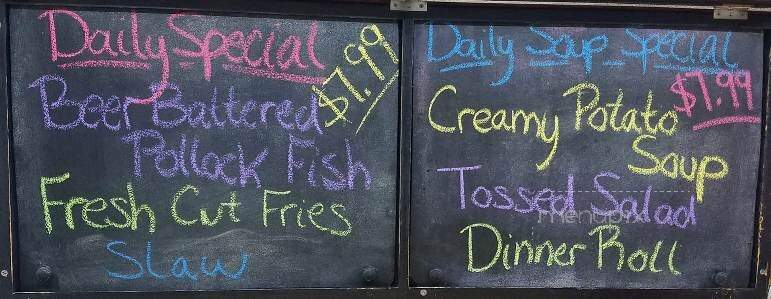 Daily Special
$7.99
Beer Battered
Pollock Fish
Fresh Cut Fries
Slaw
Daily Soup Special
$7.99
Creamy Potato
Soup
Tossed Salad
Dinner Roll
menupix